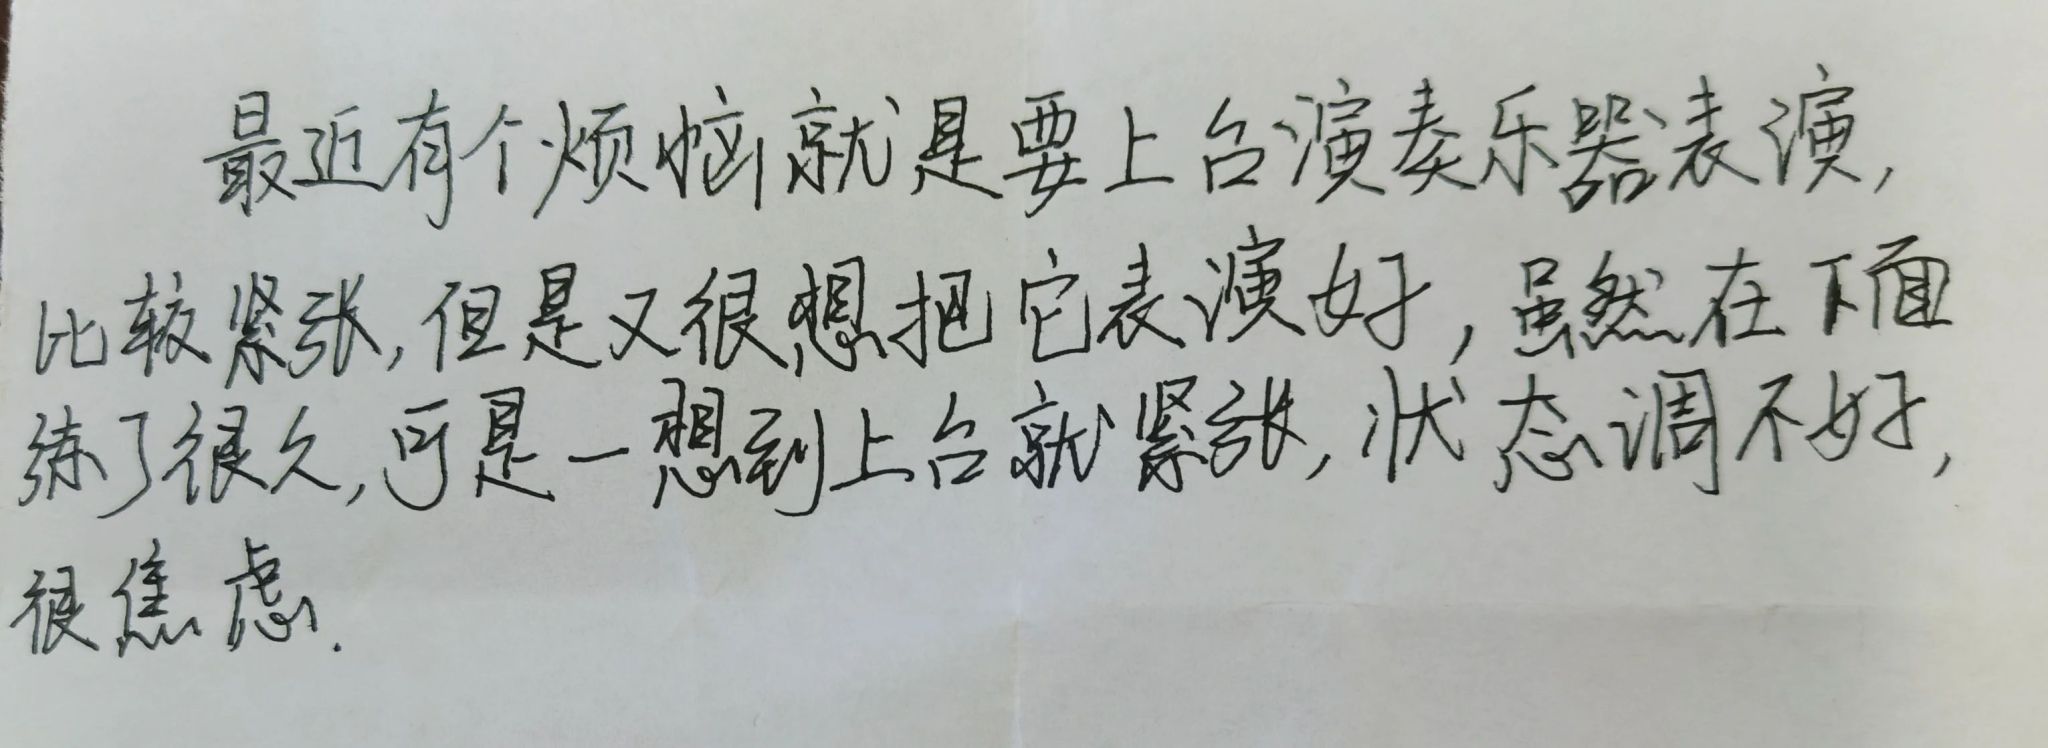 最近有个烦恼就是要上台演奏乐器表演,
比较紧张,但是又很想把它表演好,虽然在下面
练了很久,可是一想到上台就紧张,状态调不好,
很焦虑.